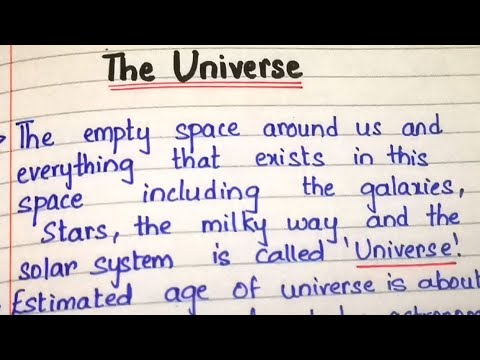 The Universe
The empty space around us and
everything that exists in this
space including the galaxies,
Stars, the milky way and the
solar system is called 'Universe'.
Estimated age of universe is about